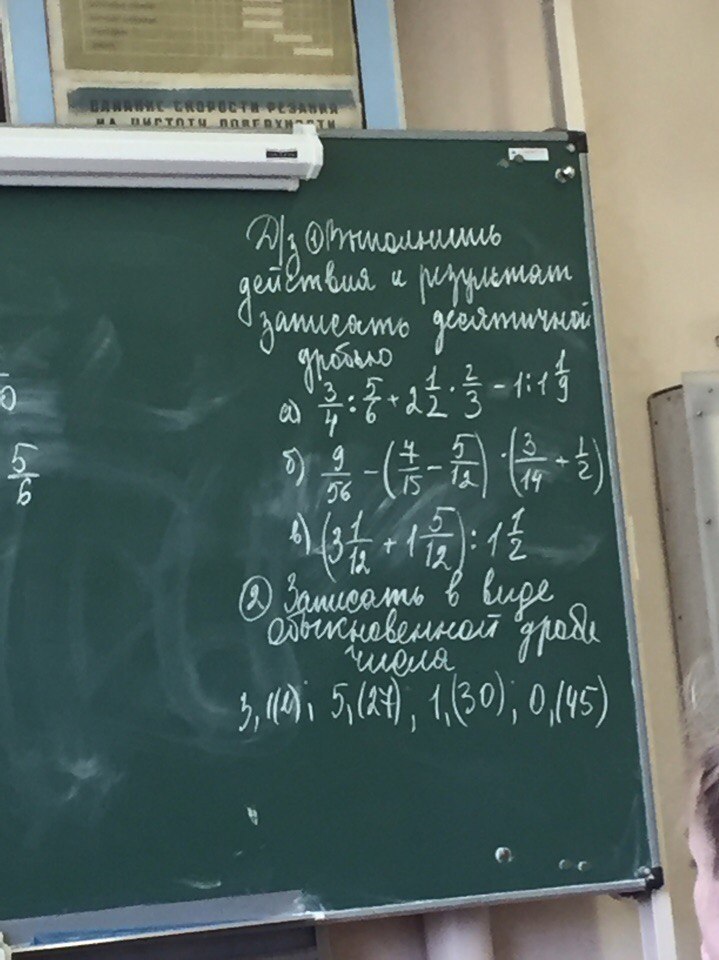 ВЛИЯНИЕ СКОРОСТИ РЕЗАНИЯ
НА ЧИСТОТУ ПОВЕРХНОСТИ
Д/з ① Выполнить
действия и результат
записать десятичной
дробью
а) 3/4 : 5/6 + 2 1/2 · 2/3 - 1 : 1 1/9
б) 9/56 - (7/15 - 5/12) · (3/14 + 1/2)
в) (3 1/12 + 1 5/12) : 1 1/2
② Записать в виде
обыкновенной дроби
числа
5,(27), 1,(30); 0,(45)
5/6